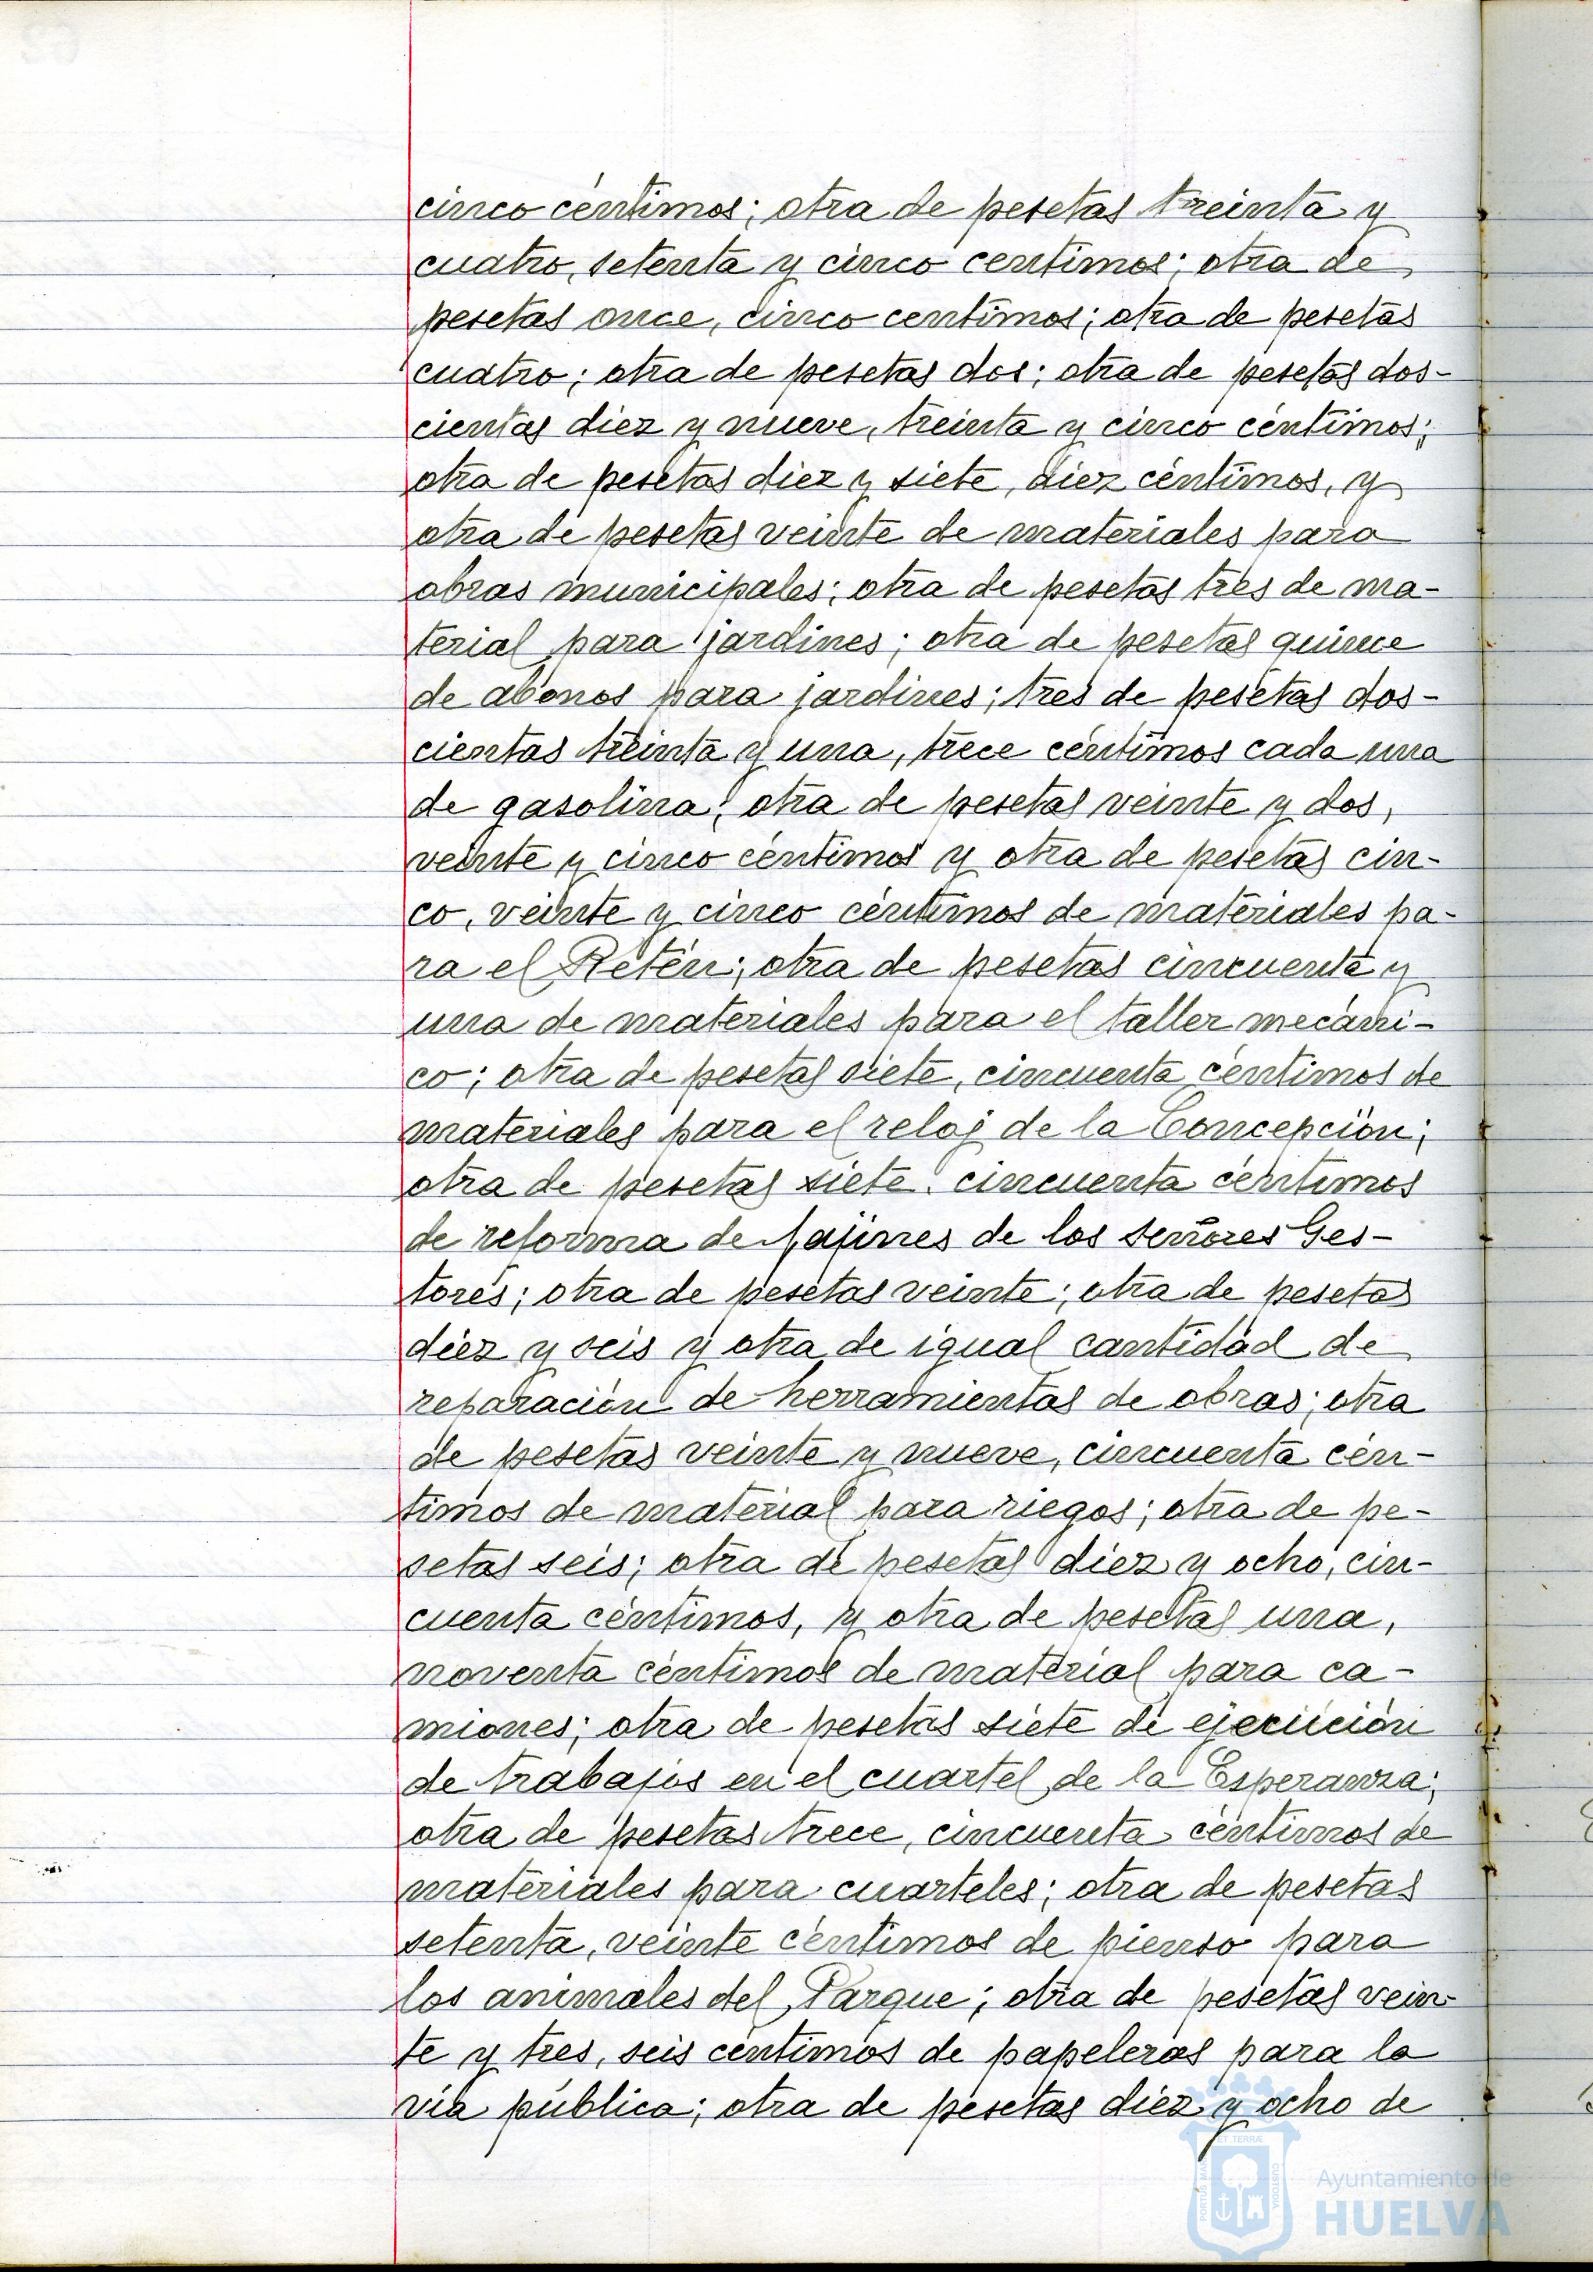 cinco céntimos; otra de pesetas treinta y
cuatro, setenta y cinco centimos; otra de
pesetas once, cinco centimos; otra de pesetas
cuatro; otra de pesetas dos; otra de pesetas dos-
cientas diez y nueve, treinta y cinco céntimos;
otra de pesetas diez y siete, diez céntimos, y
otra de pesetas veinte de materiales para
obras municipales; otra de pesetas tres de ma-
terial para jardines; otra de pesetas quince
de abonos para jardines; tres de pesetas dos-
cientas treinta y una, trece céntimos cada una
de gasolina; otra de pesetas veinte y dos,
veinte y cinco céntimos y otra de pesetas cin-
co, veinte y cinco céntimos de materiales pa-
ra el Retén; otra de pesetas cincuenta y
una de materiales para el taller mecáni-
co; otra de pesetas siete, cincuenta céntimos de
materiales para el reloj de la Concepción;
otra de pesetas siete, cincuenta céntimos
de reforma de fajines de los señores Ges-
tores; otra de pesetas veinte; otra de pesetas
diez y seis y otra de igual cantidad de
reparación de herramientas de obras; otra
de pesetas veinte y nueve, cincuenta cén-
timos de material para riegos; otra de pe-
setas seis; otra de pesetas diez y ocho, cin-
cuenta céntimos, y otra de pesetas una,
noventa céntimos de material para ca-
miones; otra de pesetas siete de ejecución
de trabajos en el cuartel de la Esperanza;
otra de pesetas trece, cincuenta céntimos de
materiales para cuarteles; otra de pesetas
setenta, veinte céntimos de pienso para
los animales del Parque; otra de pesetas vein-
te y tres, seis centimos de papeleras para la
vía pública; otra de pesetas diez y ocho de
Ayuntamiento de
HUELVA